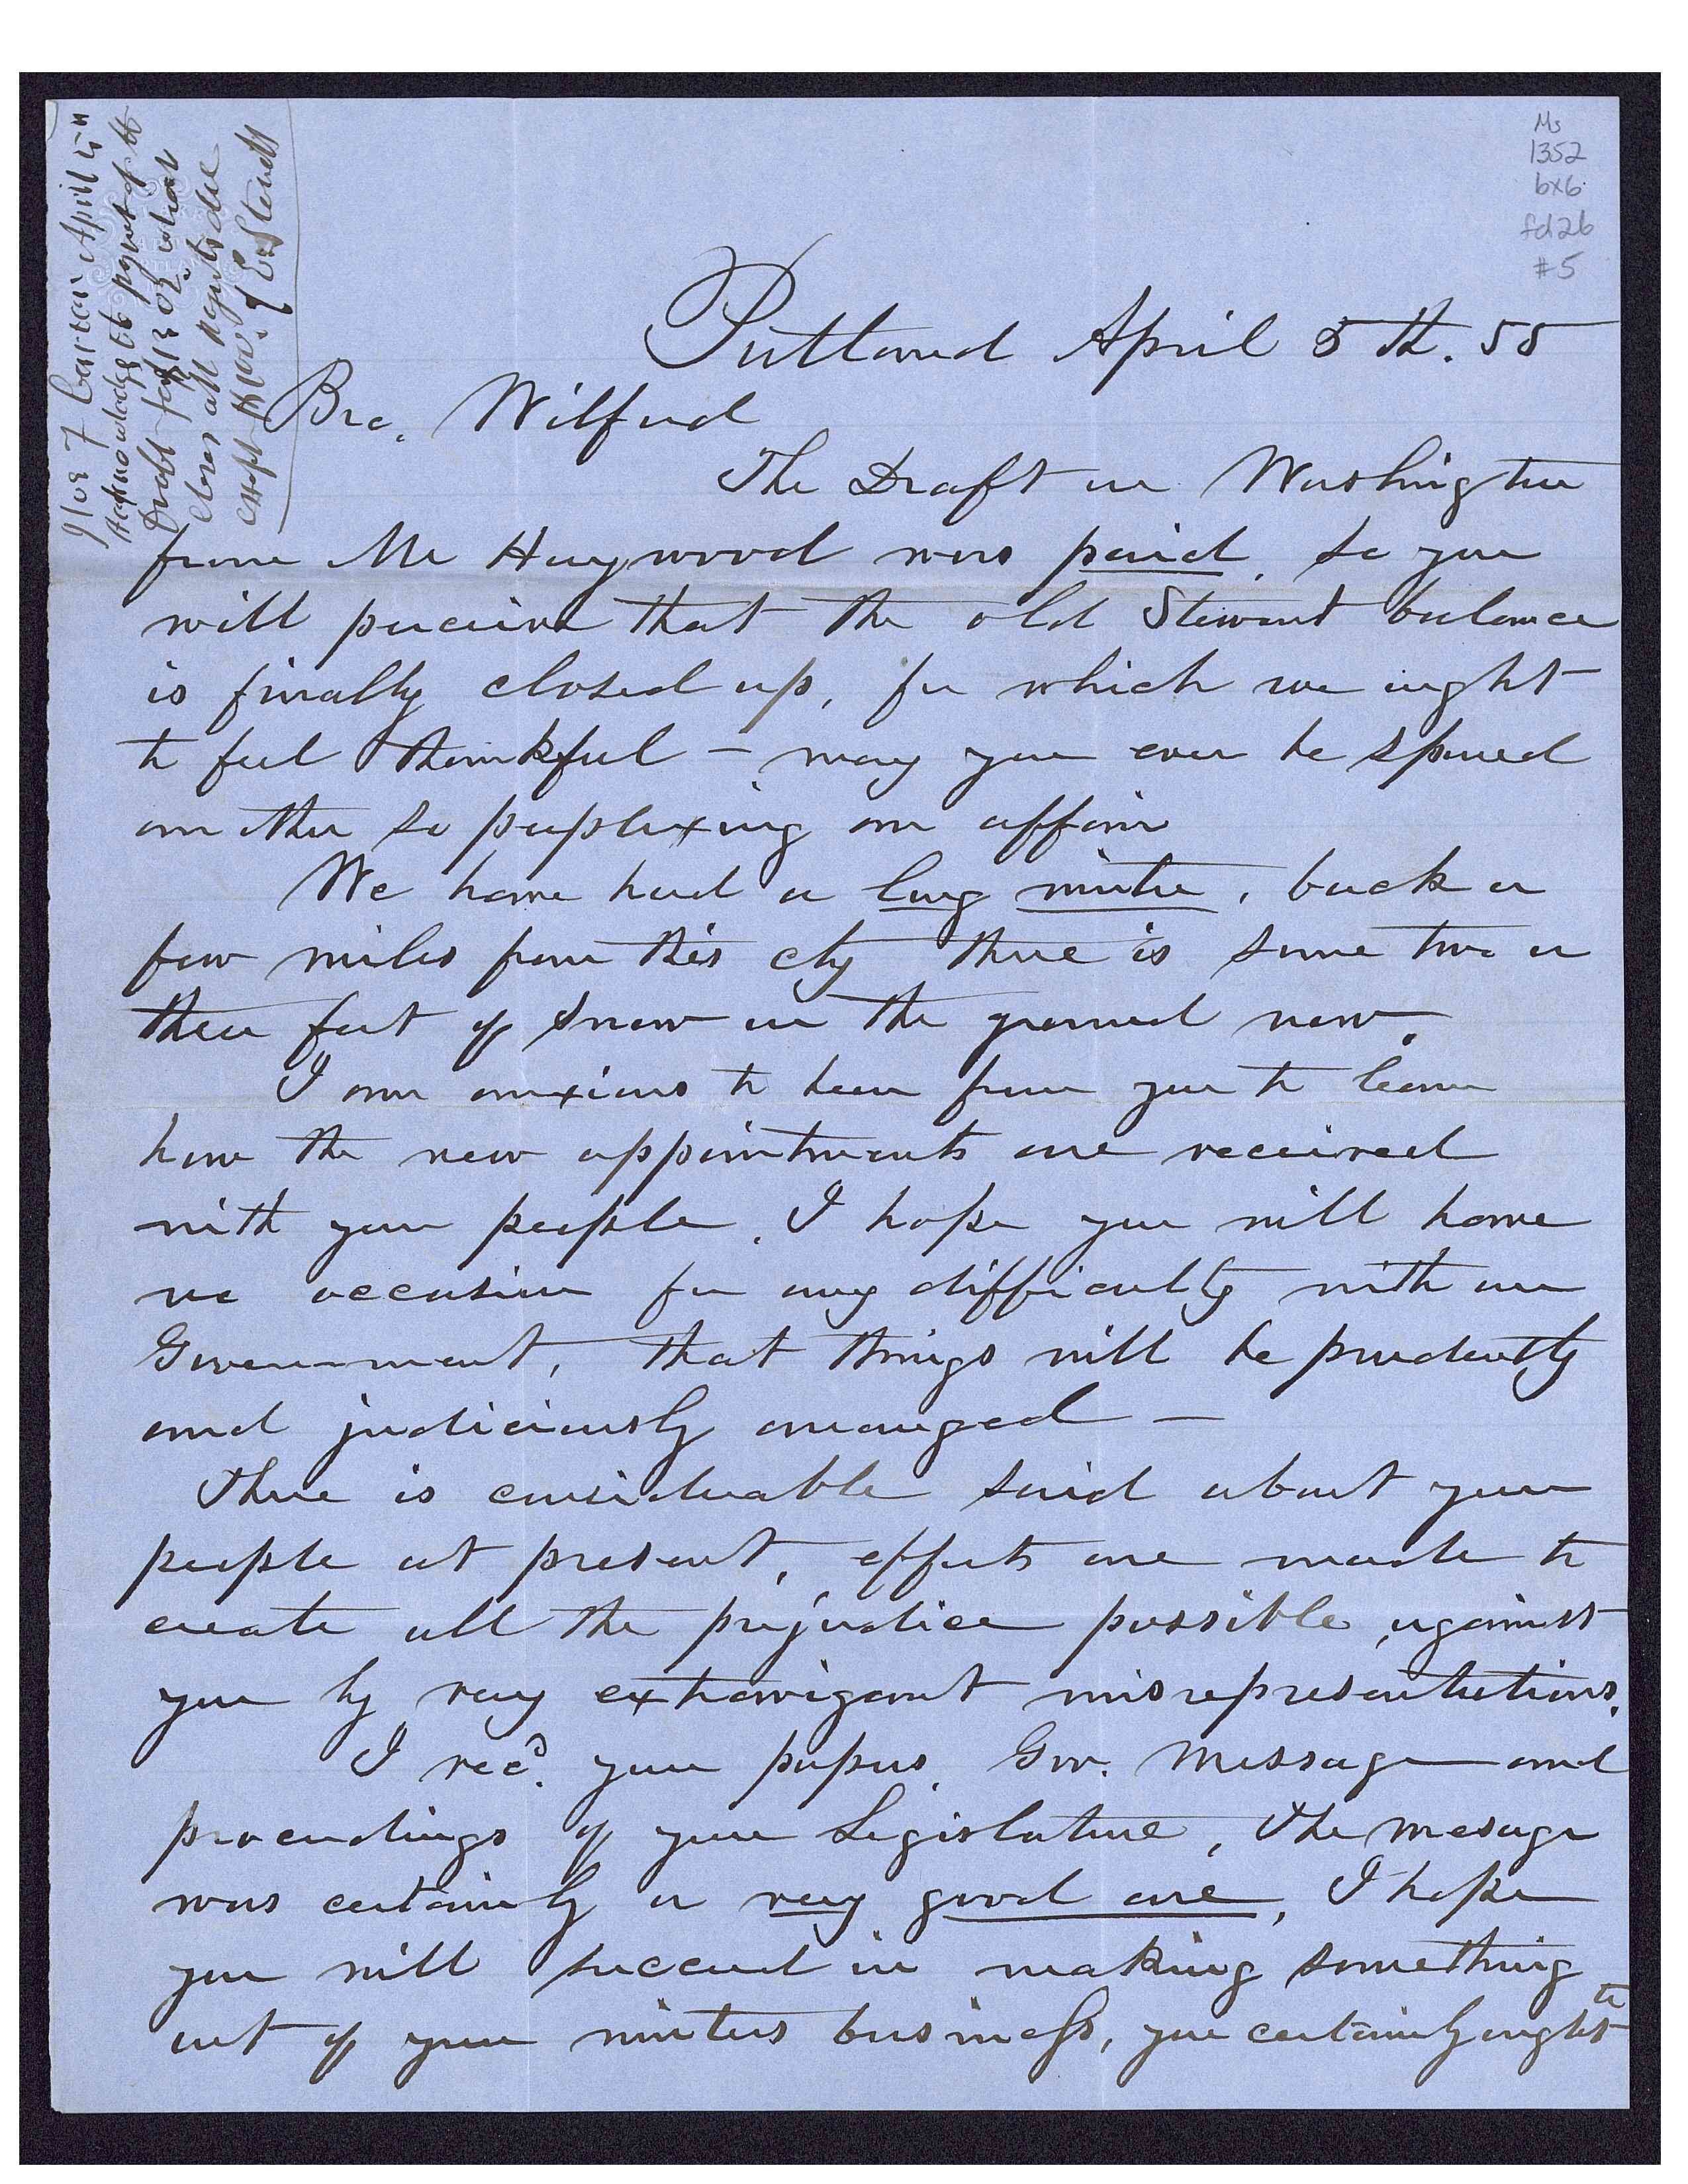 Ilus F Carter April 5"
Acknowledges paymt of
Draft for $1302 which
closes all accounts due
except Hiw. of E. Stewart
Ms
1352
bx6
fd26
#5
Portland April 5th. 55
Bro. Wilford
The Draft on Washington
from Mr Haywood was paid, so you
will perceive that the old Stewart balance
is finally closed up, for which we ought
to feel thankful – may you ever be spared
another so perplexing an affair
We have had a long winter, back a
few miles from this city there is some two or
three feet of snow on the ground now.
I am anxious to hear from you to learn
how the new appointments are received
with your people. I hope you will have
no occasion for any difficulty with our
Government, that things will be prudently
and judiciously arranged –
There is considerable said about your
people at present, efforts are made to
create all the prejudice possible, against
you by very extravigant misrepresentations.
I recd. your papers, Gov. Message and
proceedings of your Legislature, The mesage
was certainly a very good one, I hope
you will succeed in making something
out of your winters business, you certainly ought to